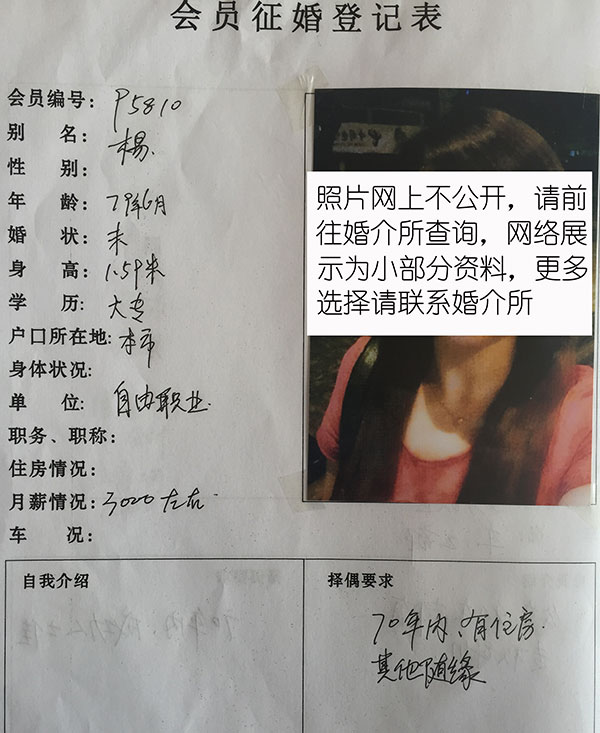 会员征婚登记表
会员编号: P5810
别 名: 杨
性 别:
年 龄: 79年6月
婚 状: 未
身 高: 1.59米
学 历: 大专
户口所在地: 本市
身体状况:
单 位: 自由职业
职务、职称:
住房情况:
月薪情况: 3000左右
车 况:
照片网上不公开，请前
往婚介所查询，网络展
示为小部分资料，更多
选择请联系婚介所
自我介绍
择偶要求
70年内、有住房
其他随缘